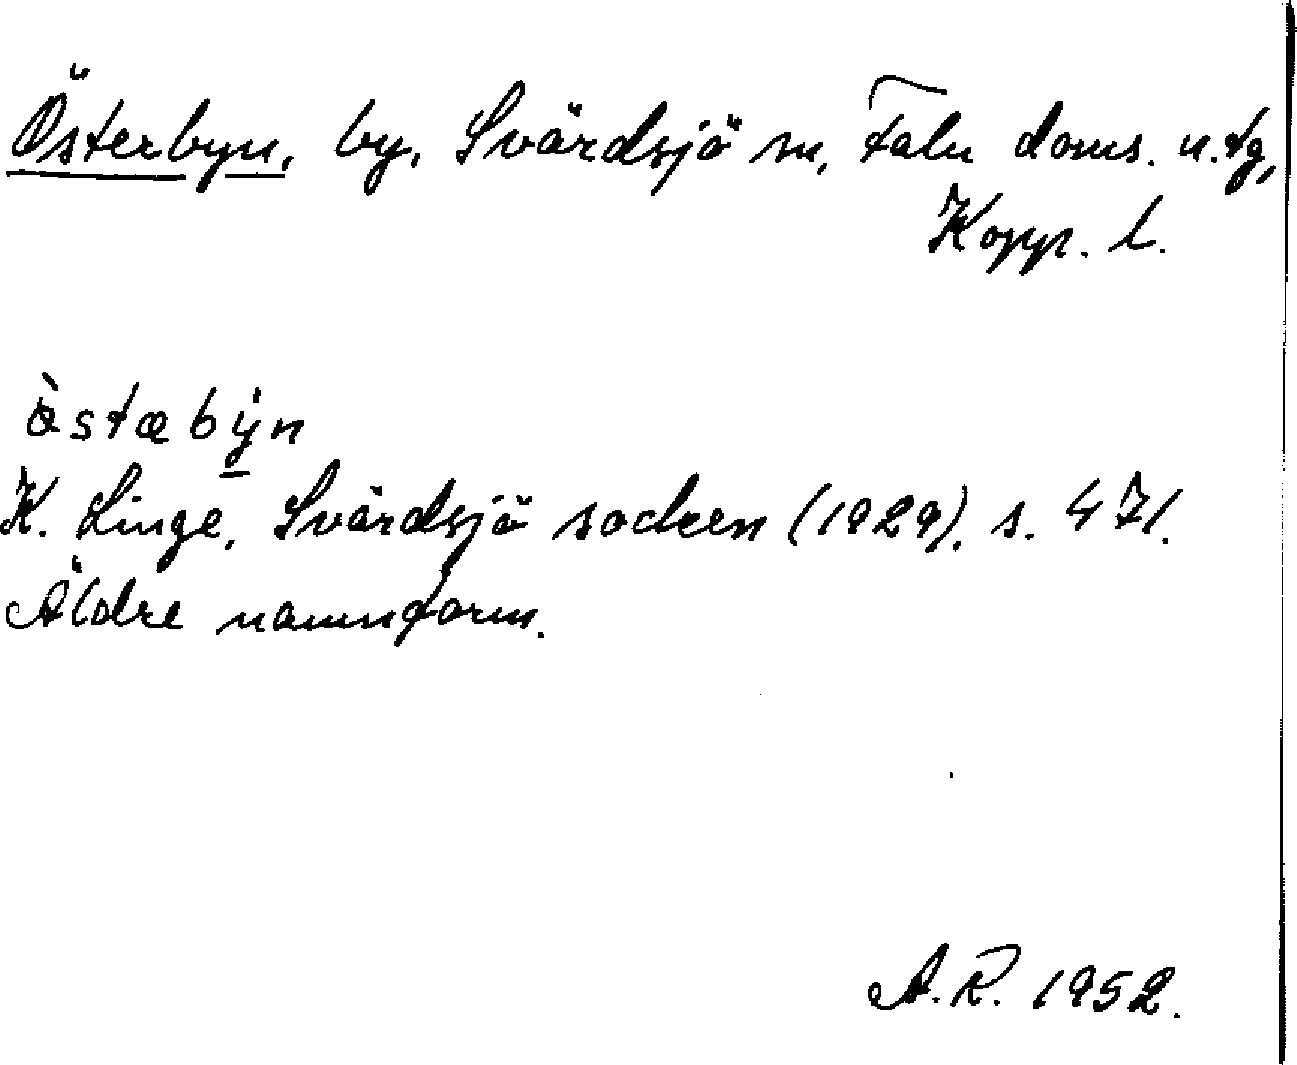 Österbyn, by, Svärdsjö sn, Falu doms. n. tg,
Kopp. l.
K. Linge, Svärdsjö socken (1929), s. 471.
Äldre namnform.
A.R. 1952.